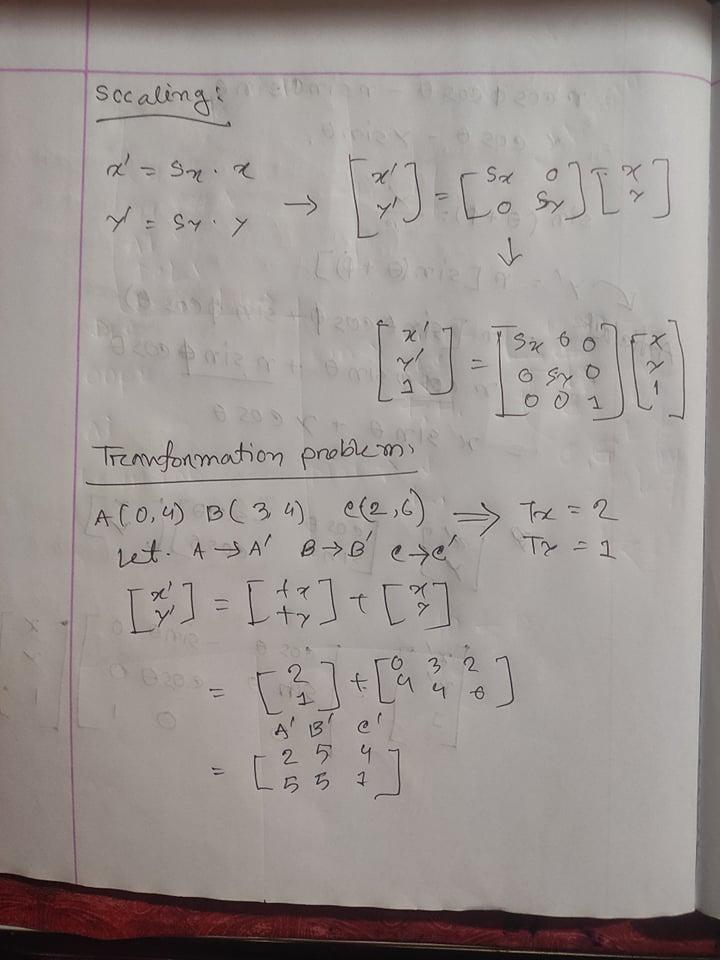 Sccaling:
x' = Sx . x
y' = Sy . y → [x' y'] = [Sx 0 0 Sy] [x y]
↓
[x' y' 1] = [Sx 0 0 0 Sy 0 0 0 1] [x y 1]
Tranformation problem:
A(0,4) B(3,4) C(2,6) ⇒ Tx = 2
Let. A → A' B → B' C → C' Ty = 1
[x' y'] = [tx ty] + [x y]
= [2 1] + [0 3 2 4 4 6]
A' B' C'
= [2 5 4 5 5 7]